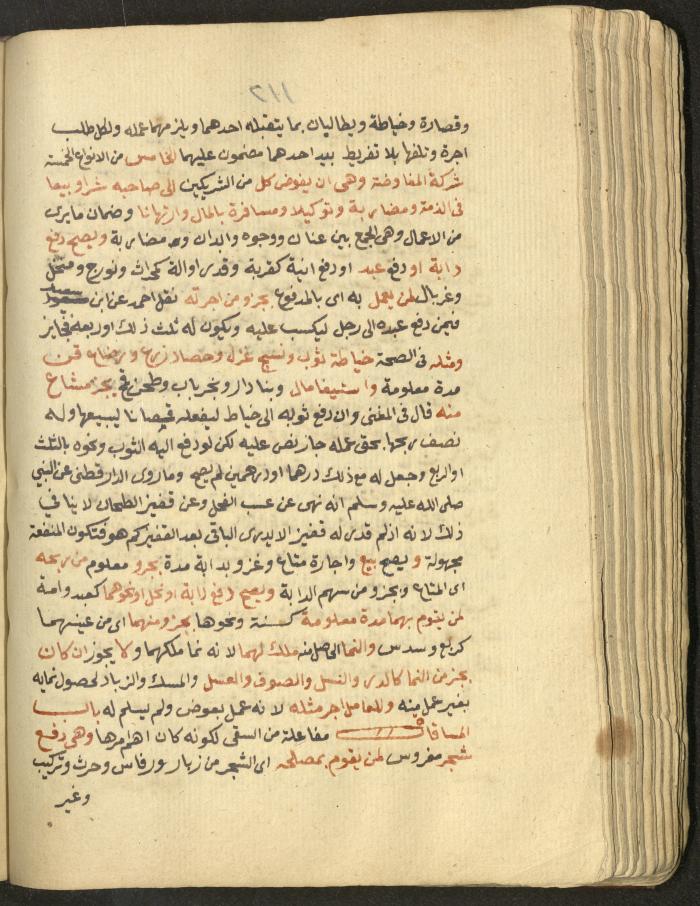 ١١٢
وقصارة وخياطة ويطالبان بما يتقبله احدهما ويلزمهما عمله ولكل طلب
اجرة وتلفها بلا تفريط بيد احدهما مضمون عليهما الخامس من الانواع الخمسة
شركة المفاوضة وهي ان يفوض كل من الشريكين الى صاحبه شرا وبيعا
في الذمة ومضاربة وتوكيلا ومسافرة بالمال وارتهانا وضمان ما يرى
من الاعمال وهي الجمع بين عنان ووجوه وابدان ومضاربة ويصح دفع
دابة او دفع عبد او دفع انية كقربة وقدر او الة كمحراث ونورج ومنجل
وغربال لمن يعمل به اي بالمدفوع بجزء من اجرته نقل احمد عن ابن سعيد
فيمن دفع عبده الى رجل ليكسب عليه ويكون له ثلث ذلك او ربعه فجايز
ومثله في الصحة خياطة ثوب ونسج غزل وحصاد زرع ورضاع قن
مدة معلومة واستيفا مال وبنا دار ونجر باب وطحن قمح بجزء مشاع
منه قال في المغني وان دفع ثوبه الى خياط ليفصله قمصانا ليبيعها وله
نصف ربحها بحق عمله جاز نص عليه لكن لو دفع اليه الثوب ونحوه بالثلث
او الربع وجعل له مع ذلك درهما او درهمين لم يصح وما روى الدارقطني عن النبي
صلى الله عليه وسلم انه نهى عن عسب الفحل وعن قفيز الطحان لا ينافي
ذلك لانه اذا لم قدر له قفيز الا يدرى الباقي بعد القفيز كم هو فتكون المنفعة
مجهولة ويصح بيع واجارة متاع وغزو بدابة مدة بجزء معلوم من ربحه
اي المتاع وبجزء من سهم الدابة ويصح دفع دابة او نحل او نحوهما كعبد وامة
لمن يقوم بهما مدة معلومة كسنة ونحوها بجزء منهما اي من عينهما
كربع وسدس والنما الحاصل منه ملك لهما لانه نما ملكهما ولا يجوز ان كان
بجزء من النما كالدر والنسل والصوف والعسل والمسك والزباد لحصول نمايه
بغير عمل منه وللعامل اجر مثله لانه عمل بعوض ولم يسلم له باب
المساقاة مفاعلة من السقي لكونه كان اهم امرها وهي دفع
شجر مغروس لمن يقوم بمصلحه اي الشجر من زبار ورفاس وحرث وتركيب
وغير